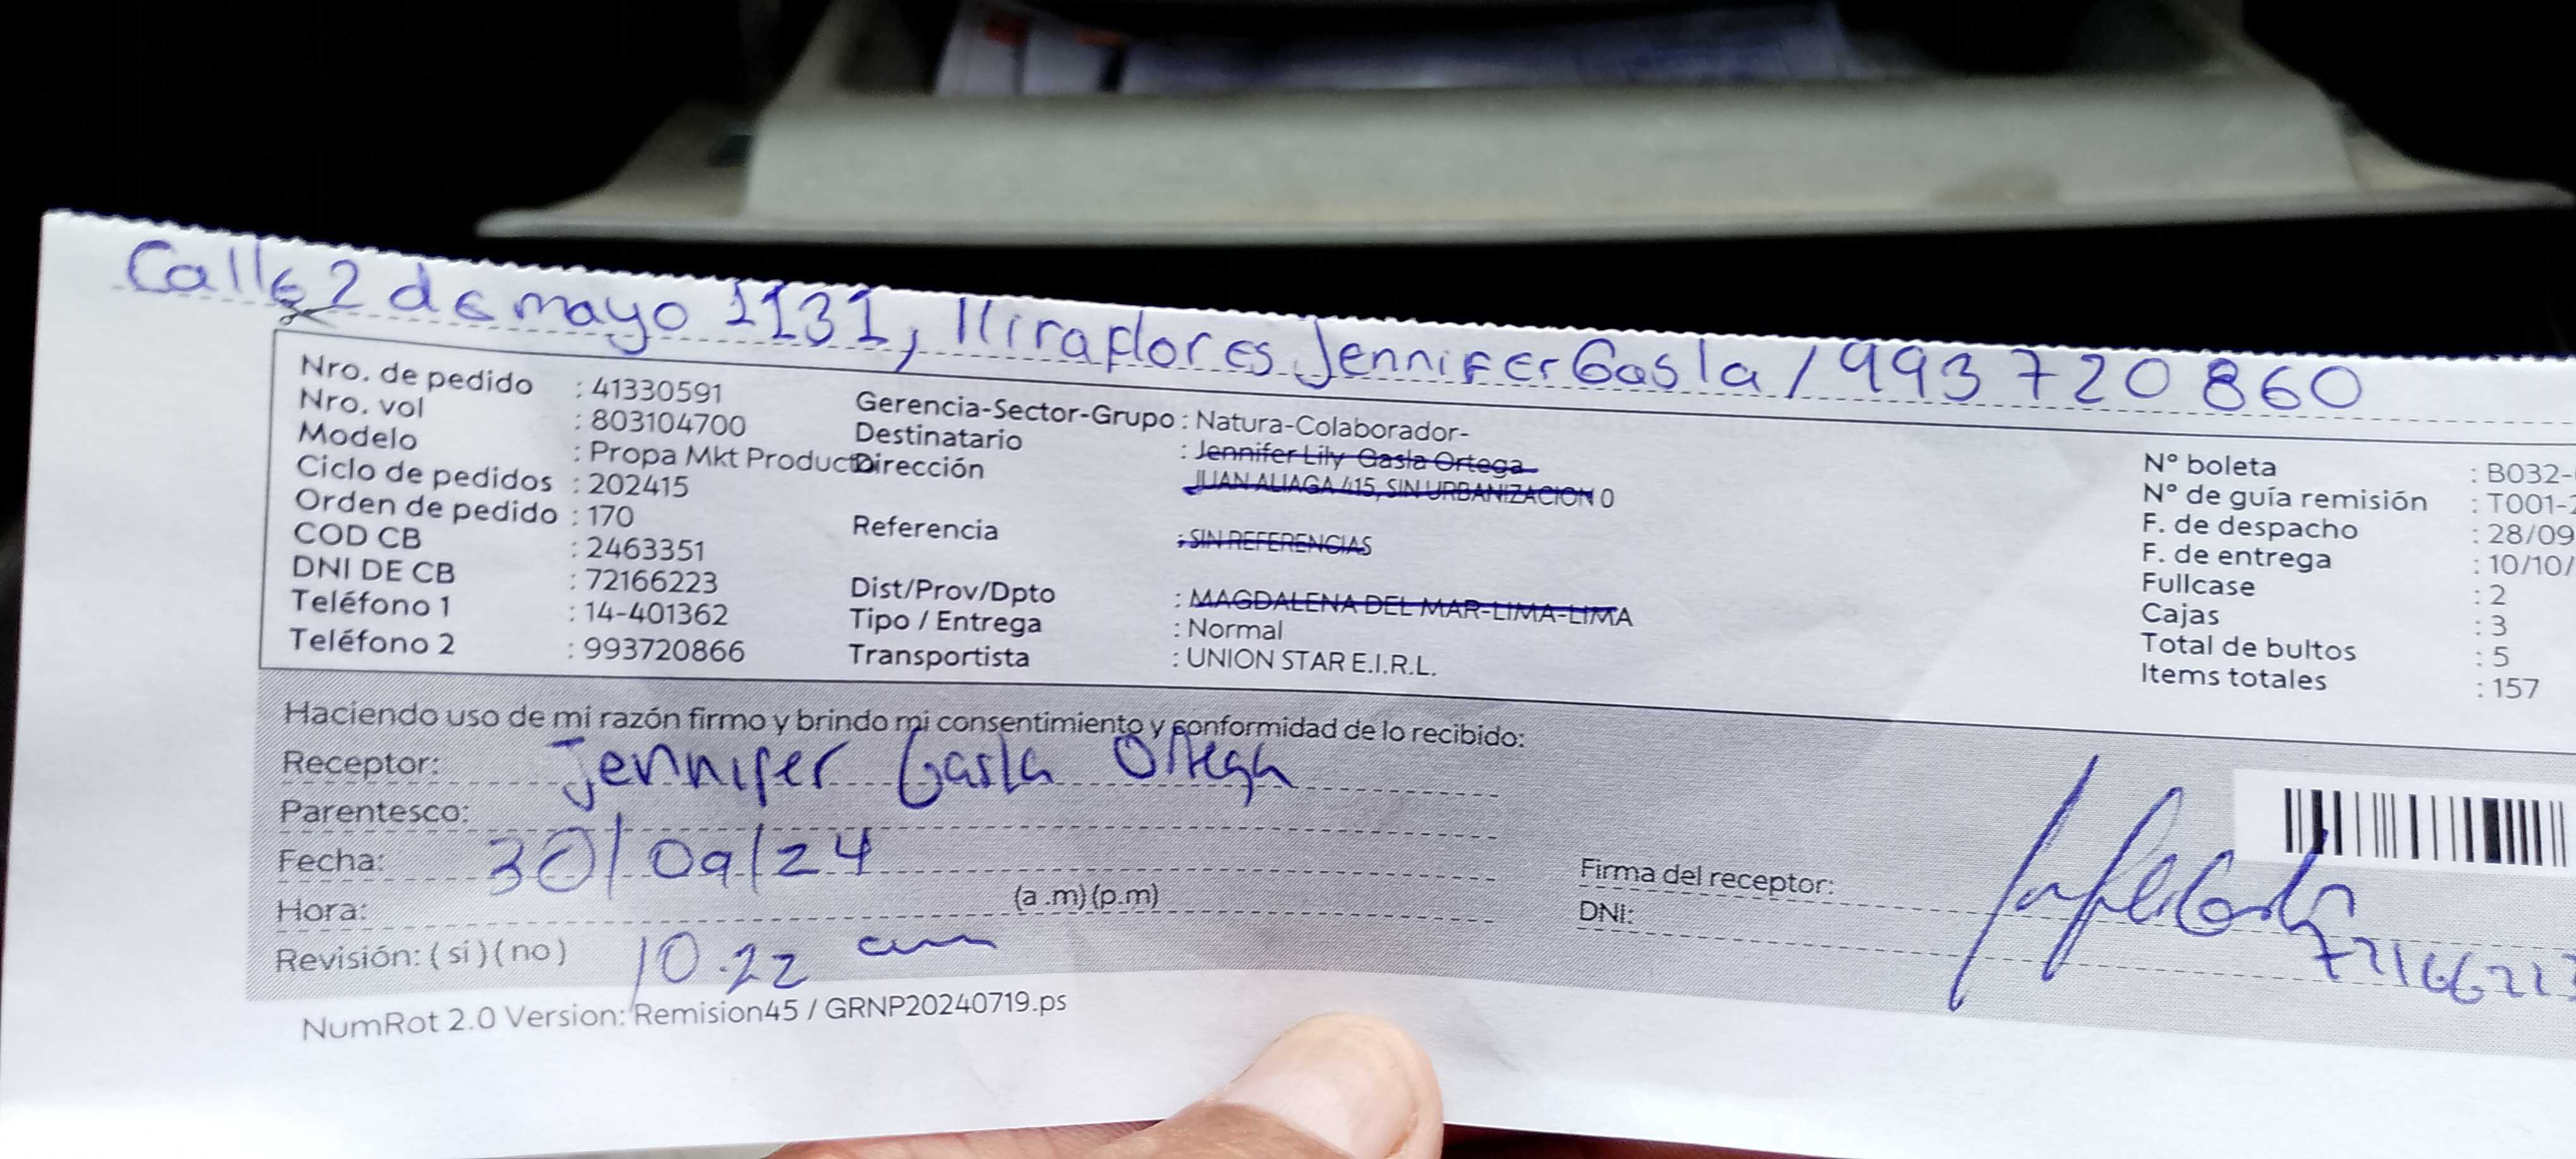 Calle 2 de mayo 1131, Miraflores Jennifer Gasla / 993 720 860
Nro. de pedido : 41330591
Nro. vol : 803104700
Modelo : Propa Mkt Product
Ciclo de pedidos : 202415
Orden de pedido : 170
COD CB : 2463351
DNI DE CB : 72166223
Teléfono 1 : 14-401362
Teléfono 2 : 993720866
Gerencia-Sector-Grupo : Natura-Colaborador-
Destinatario : Jennifer Lily Gasla Ortega
Dirección JUAN ALIAGA 415, SIN URBANIZACION 0
Referencia : SIN REFERENCIAS
Dist/Prov/Dpto : MAGDALENA DEL MAR-LIMA-LIMA
Tipo / Entrega : Normal
Transportista : UNION STAR E.I.R.L.
N° boleta : B032-
N° de guía remisión : T001-2
F. de despacho : 28/09
F. de entrega : 10/10/
Fullcase : 2
Cajas : 3
Total de bultos : 5
Items totales : 157
Haciendo uso de mi razón firmo y brindo mi consentimiento y conformidad de lo recibido:
Receptor: Jennifer Gasla Ortega
Parentesco:
Fecha: 30/09/24
Hora: (a .m)(p.m)
Revisión: ( si )( no ) 10.22 am
Firma del receptor:
DNI: 7216622
NumRot 2.0 Version: Remision45 / GRNP20240719.ps